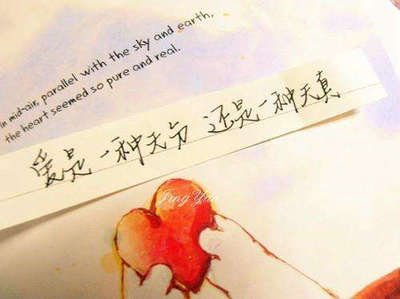 in mid-air, parallel with the sky and earth,
the heart seemed so pure and real.
爱是一种天分 还是一种天真